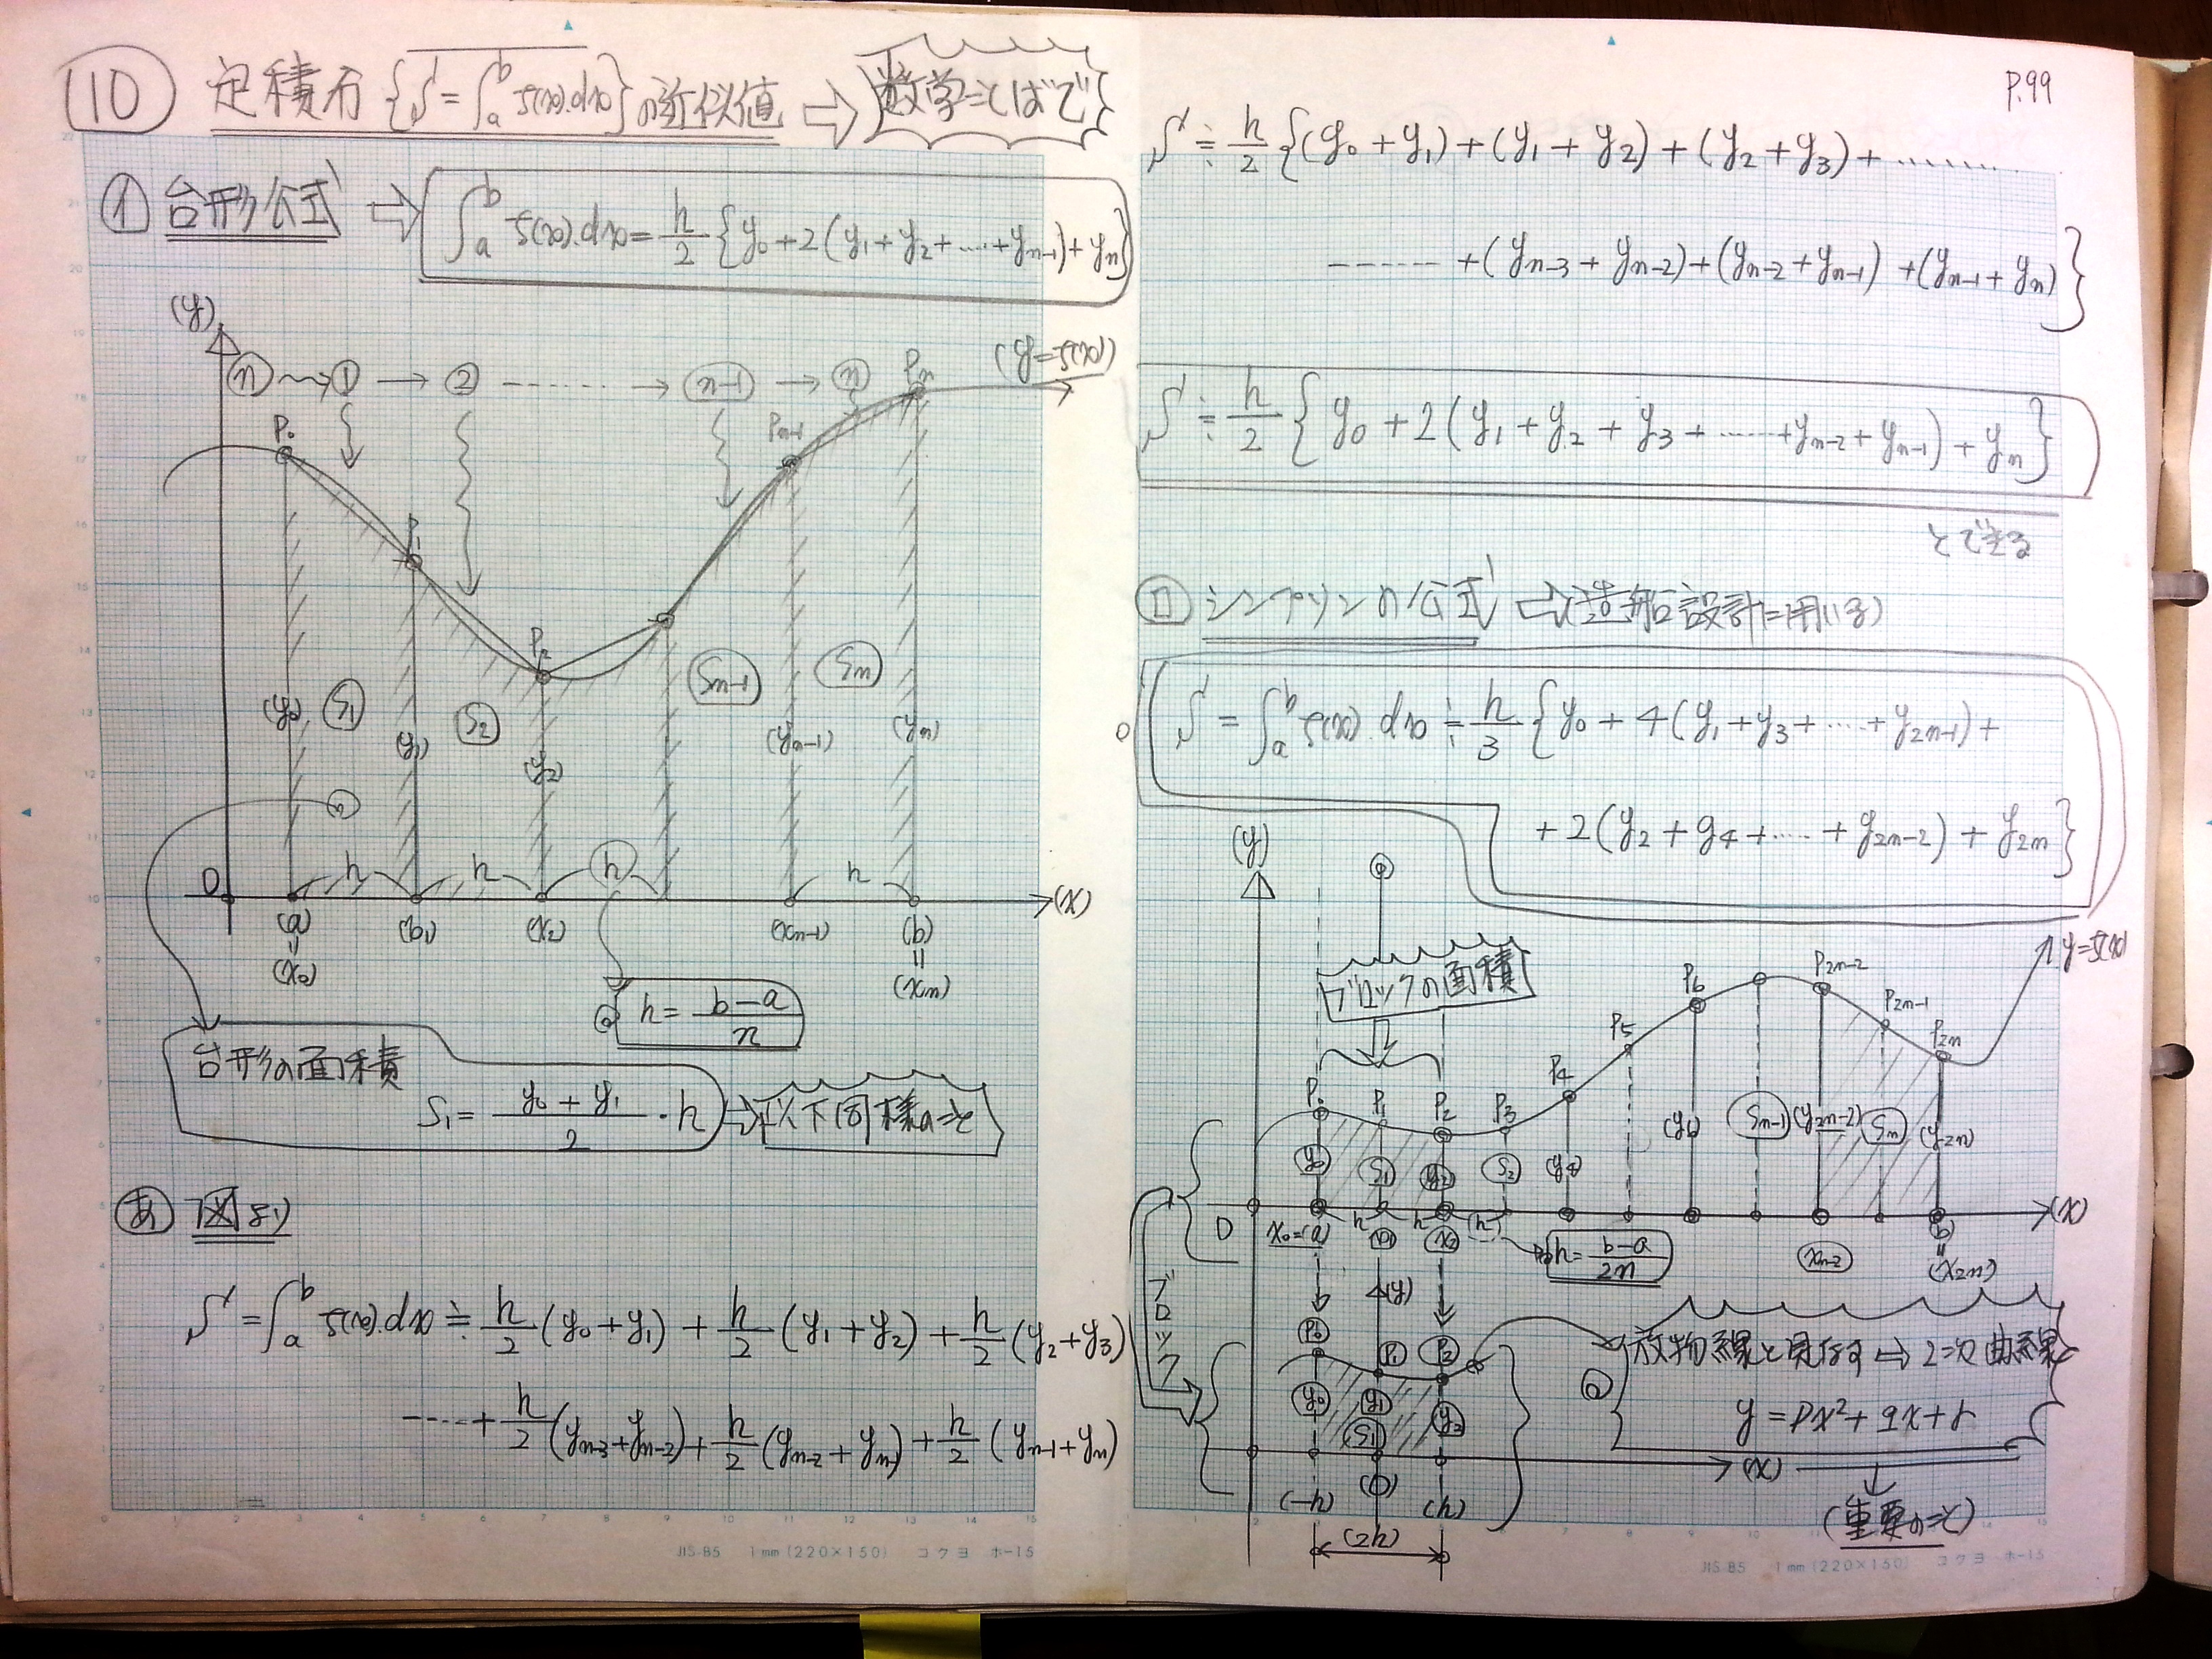 ⑩ 定積分{S=∫ₐᵇf(x).dx}の近似値 ⇨ 数学ことばで
㋑ 台形公式 ⇨ ∫ₐᵇf(x).dx=h/2{y₀+2(y₁+y₂+……+yₙ₋₁)+yₙ}
(y)
(y=f(x))
ⓝ ① → ② ------ → (n-1) → ⓝ
P₀ P₁ P₂ Pₙ₋₁ Pₙ
(y₀) S₁ (y₁) S₂ (y₂) Sₙ₋₁ (yₙ₋₁) Sₙ (yₙ)
h h h h
O (a) (b₁) (x₂) (xₙ₋₁) (b) (x)
॥ ॥
(x₀) (xₙ)
h=(b-a)/n
台形の面積
S₁=(y₀+y₁)/2・h ⇨ 以下同様のこと
㋐ 図より
S=∫ₐᵇf(x).dx≒h/2(y₀+y₁)+h/2(y₁+y₂)+h/2(y₂+y₃)
----+h/2(yₙ₋₃+yₙ₋₂)+h/2(yₙ₋₂+yₙ₋₁)+h/2(yₙ₋₁+yₙ)
JIS-B5 1mm(220×150) コクヨ ホ-15
P.99
S≒h/2{(y₀+y₁)+(y₁+y₂)+(y₂+y₃)+........
------+(yₙ₋₃+yₙ₋₂)+(yₙ₋₂+yₙ₋₁)+(yₙ₋₁+yₙ)}
S≒h/2{y₀+2(y₁+y₂+y₃+……+yₙ₋₂+yₙ₋₁)+yₙ}
とできる
ロ シンプソンの公式 ⇨(造船設計に用いる)
S=∫ₐᵇf(x).dx≒h/3{y₀+4(y₁+y₃+……+y₂ₙ₋₁)+
+2(y₂+y₄+……+y₂ₙ₋₂)+y₂ₙ}
(y)
y=f(x)
ブロックの面積
P₀ P₁ P₂ P₃ P₄ P₅ P₆ P₂ₙ₋₂ P₂ₙ₋₁ P₂ₙ
y₀ S₁ y₂ S₂ (y₄) (y₆) Sₙ₋₁ (y₂ₙ₋₂) Sₙ (y₂ₙ)
O x₀=(a) h h (h) (b) (x)
x₂ h=(b-a)/2n (x₂ₙ)
ブロック
(y)
P₀ P₁ P₂
y₀ y₁ y₂
S₁
放物線と見なす ⇨ 2次曲線
y=px²+qx+r
(x)
(-h) (0) (h)
(2h)
(重要のこと)
JIS-B5 1mm(220×150) コクヨ ホ-15